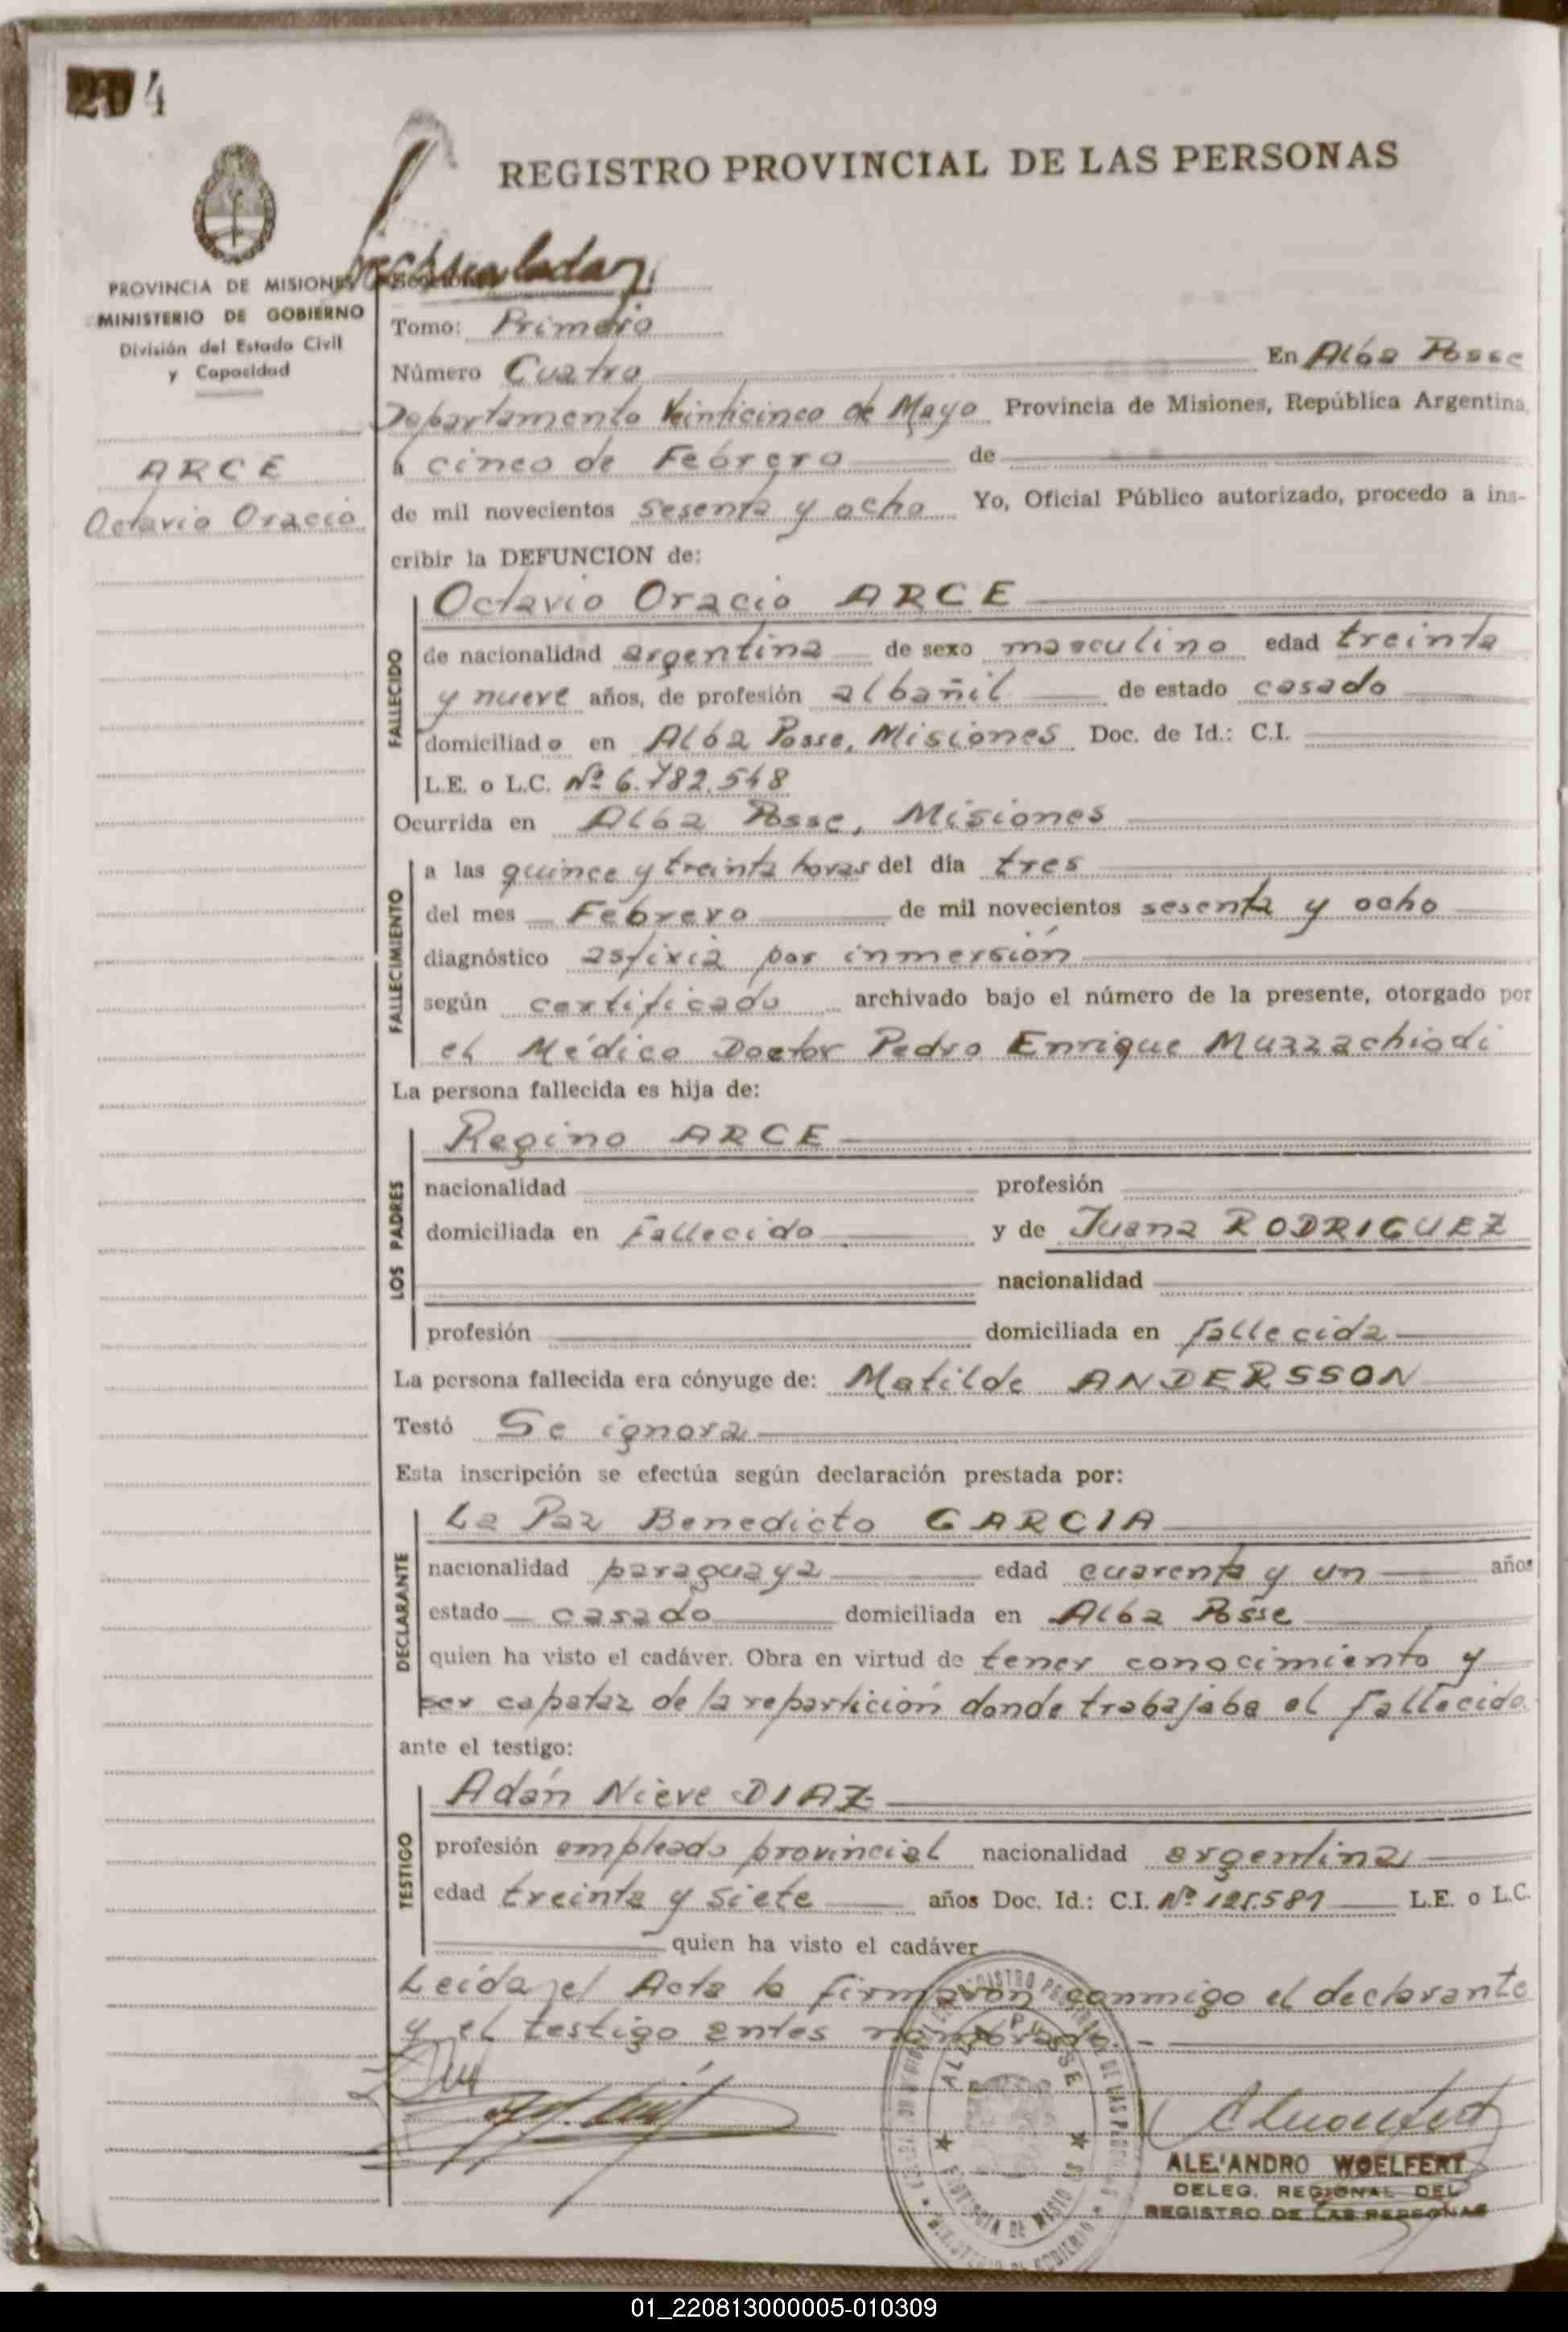 4
REGISTRO PROVINCIAL DE LAS PERSONAS
PROVINCIA DE MISIONES
MINISTERIO DE GOBIERNO
División del Estado Civil
y Capacidad
ARCE
Octavio Oracio
Tomo: Primero
Número Cuatro En Alba Posse
Departamento Veinticinco de Mayo Provincia de Misiones, República Argentina,
a cinco de Febrero de
de mil novecientos sesenta y ocho Yo, Oficial Público autorizado, procedo a ins-
cribir la DEFUNCION de:
FALLECIDO
Octavio Oracio ARCE
de nacionalidad argentina de sexo masculino edad treinta
y nueve años, de profesión albañil de estado casado
domiciliado en Alba Posse, Misiones Doc. de Id.: C.I.
L.E. o L.C. Nº 6.782.548
Ocurrida en Alba Posse, Misiones
FALLECIMIENTO
a las quince y treinta horas del día tres
del mes Febrero de mil novecientos sesenta y ocho
diagnóstico asfixia por inmersión
según certificado archivado bajo el número de la presente, otorgado por
el Médico Doctor Pedro Enrique Muzzachiodi
La persona fallecida es hija de:
LOS PADRES
Regino ARCE
nacionalidad profesión
domiciliada en Fallecido y de Juana RODRIGUEZ
nacionalidad
profesión domiciliada en fallecida
La persona fallecida era cónyuge de: Matilde ANDERSSON
Testó Se ignora
Esta inscripción se efectúa según declaración prestada por:
DECLARANTE
La Paz Benedicto GARCIA
nacionalidad paraguaya edad cuarenta y un años
estado casado domiciliada en Alba Posse
quien ha visto el cadáver. Obra en virtud de tener conocimiento y
ser capataz de la repartición donde trabajaba el fallecido.
ante el testigo:
TESTIGO
Adán Nieve DIAZ
profesión empleado provincial nacionalidad argentina
edad treinta y siete años Doc. Id.: C.I. Nº 125.581 L.E. o L.C.
quien ha visto el cadáver
Leída el Acta la firmaron conmigo el declarante
y el testigo antes nombrado.-
ALBA POSSE
PROVINCIA DE MISIONES
ALEJANDRO WOELFERT
DELEG. REGIONAL DEL
REGISTRO DE LAS PERSONAS
01_220813000005-010309